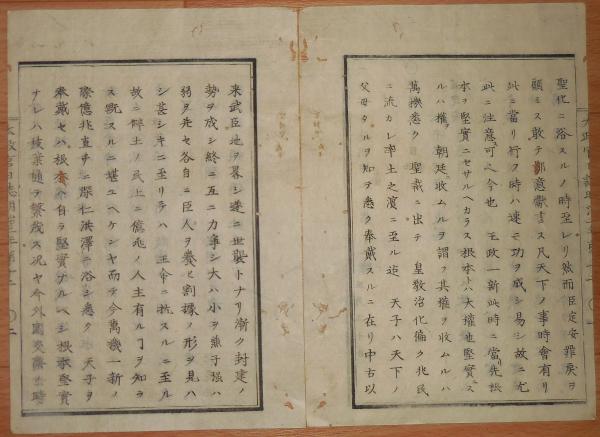 聖化ニ浴スルノ時至レリ然而臣定安罪戻ヲ
顧ミス敢テ鄙意獻言ス凡天下ノ事時會有リ
此ニ當リ行フ時ハ速ニ功ヲ成シ易シ故ニ尤
此ニ注意可ヘ今也 王政一新此時ニ當リ先根
本ヲ堅實ニセサルヘカラス根本トハ大權也堅實トス
ルハ權ヲ 朝廷ニ收ムルヲ謂フ其權ヲ收ムルハ
萬機悉ク 聖裁ニ出テ 皇敎治化偏ク兆民
ニ流カレ率土之濵ニ至ル迠 天子ハ天下ノ
父母タルヲ知テ悉ク奉戴スルニ在リ中古以
来武臣地ヲ畧シ遂ニ世襲トナリ漸ク封建ノ
勢ヲ成シ終ニ互ニ力爭シ大ハ小ヲ兼子强ハ
弱ヲ先セ各自ニ臣人ヲ養ヒ割據ノ形ヲ見ハ
シ甚シキニ至リテハ 王命ニ抗スルニ至ル
故ニ率土ノ民上ニ億兆ノ人主有ルヿヲ知ラ
ス慨スルニ堪ユヘケンヤ而テ今萬機一新ノ
際億兆直チニ深仁洪澤ニ浴シ悉ク 天子ヲ
奉戴セハ根本自ラ堅實ナルヘシ根本堅實
ナレハ枝葉随テ繁茂ス况ヤ今外國交際ノ時